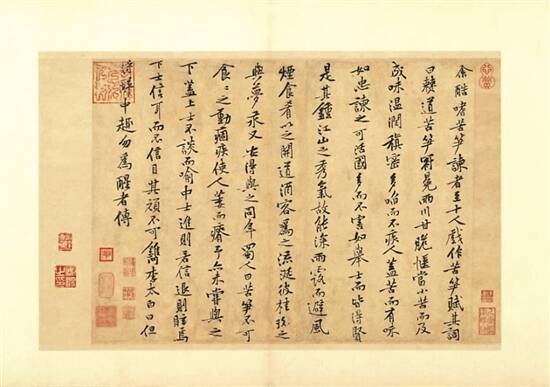 余酷嗜苦笋諫者至十人戲作苦笋賦其詞
曰僰道苦笋冠冕兩川甘脆愜當小苦而反
成味溫潤稹密多啗而不疾人蓋苦而有味
如忠諫之可活國多而不害如舉士而皆得賢
是其鍾江山之秀氣故能深雨露而避風
煙食肴以之開道酒客為之流涎彼桂玫之
與夢永又安得與之同年蜀人曰苦笋不可
食〻之動痼疾使人萎而瘠予亦未嘗與之
下蓋上士不談而喻中士進則若信退則眩焉
下士信耳而不信目其頑不可鐫李太白曰但
得醉中趣勿為醒者傳